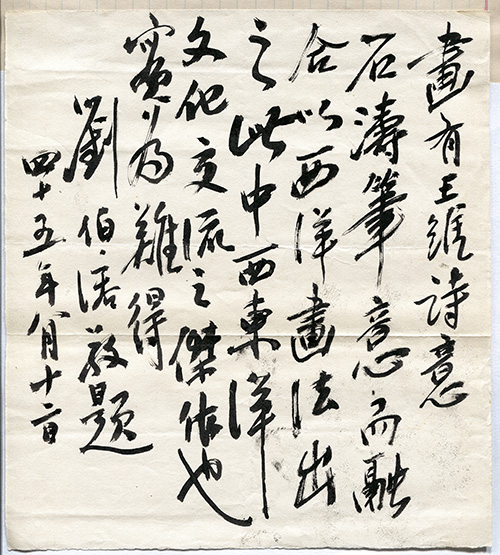 畫有王維詩意
石濤筆意而融
合以西洋畫法出
之此中西東洋
文化交流之傑作也
實為難得
劉伯
敬題
四十五年八月十二日